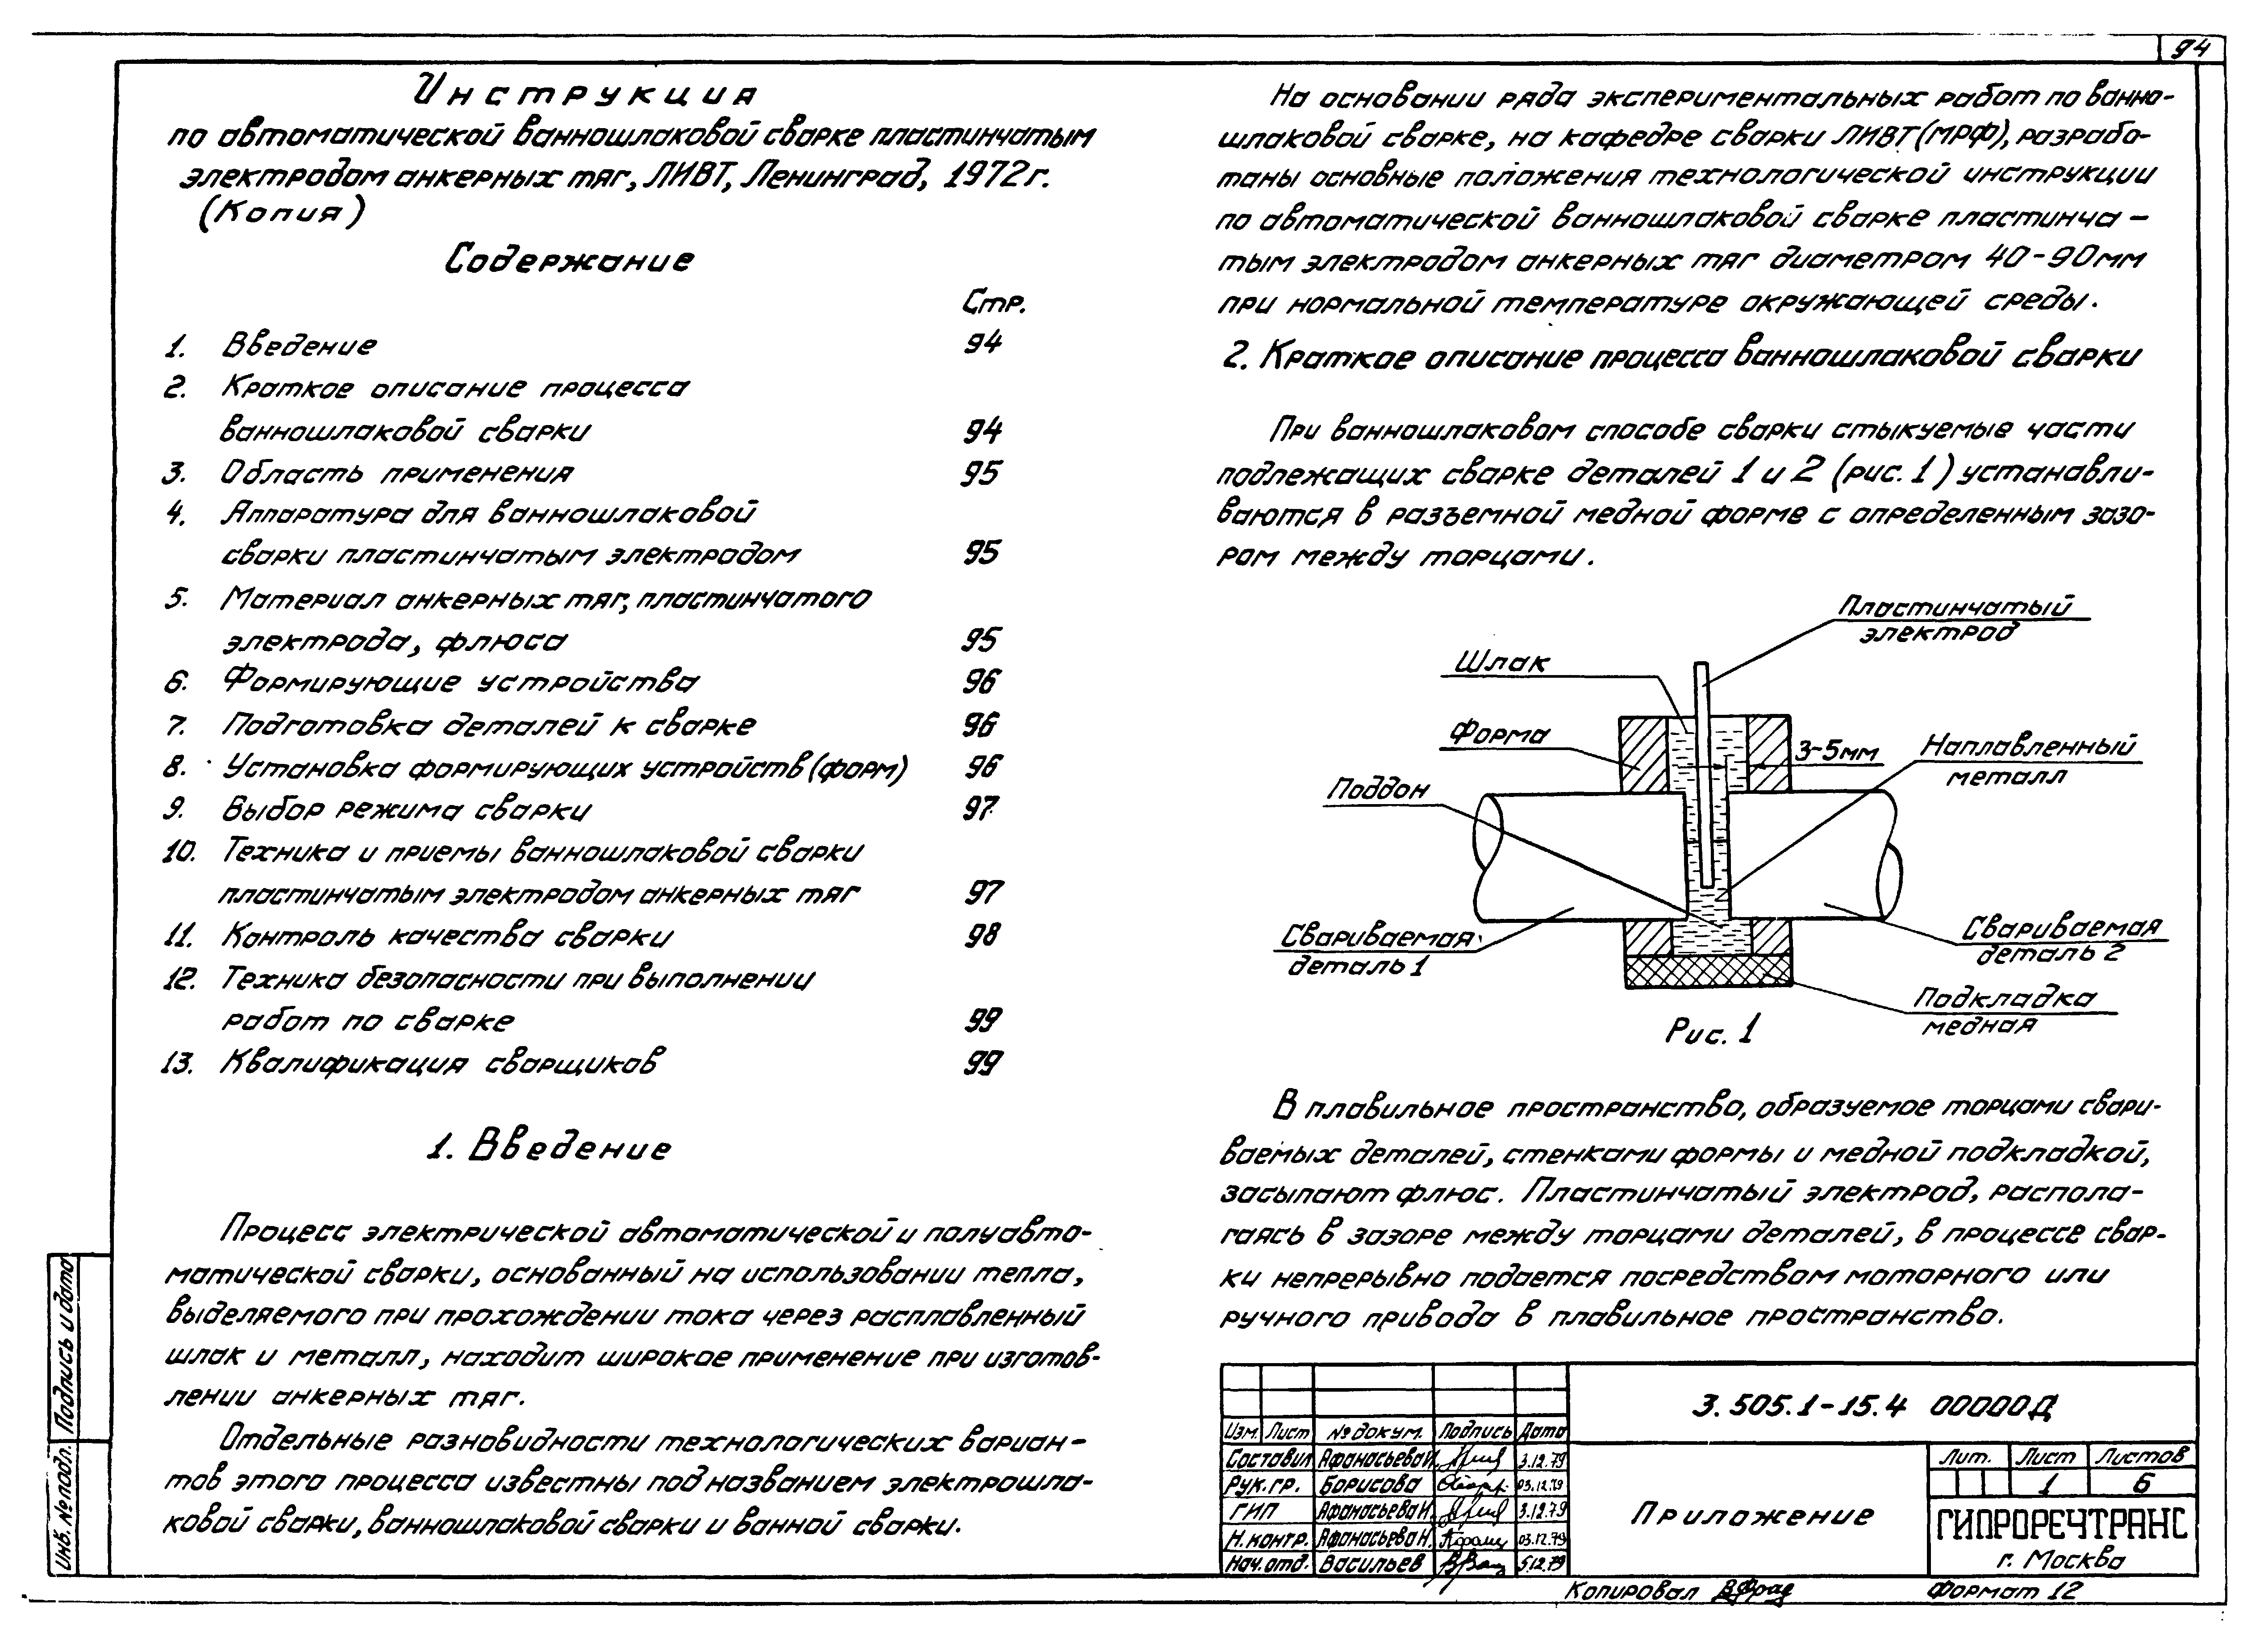 94
Инструкция
по автоматической ванношлаковой сварке пластинчатым
электродом анкерных тяг, ЛИВТ, Ленинград, 1972г.
(Копия)
Содержание
Стр.
1. Введение 94
2. Краткое описание процесса
ванношлаковой сварки 94
3. Область применения 95
4. Аппаратура для ванношлаковой
сварки пластинчатым электродом 95
5. Материал анкерных тяг, пластинчатого
электрода, флюса 95
6. Формирующие устройства 96
7. Подготовка деталей к сварке 96
8. Установка формирующих устройств (форм) 96
9. Выбор режима сварки 97
10. Техника и приемы ванношлаковой сварки
пластинчатым электродом анкерных тяг 97
11. Контроль качества сварки 98
12. Техника безопасности при выполнении
работ по сварке 99
13. Квалификация сварщиков 99
1. Введение
Процесс электрической автоматической и полуавто-
матической сварки, основанный на использовании тепла,
выделяемого при прохождении тока через расплавленный
шлак и металл, находит широкое применение при изготов-
лении анкерных тяг.
Отдельные разновидности технологических вариан-
тов этого процесса известны под названием электрошла-
ковой сварки, ванношлаковой сварки и ванной сварки.
На основании ряда экспериментальных работ по ванно-
шлаковой сварке, на кафедре сварки ЛИВТ (МРФ), разрабо-
таны основные положения технологической инструкции
по автоматической ванношлаковой сварке пластинча-
тым электродом анкерных тяг диаметром 40-90мм
при нормальной температуре окружающей среды.
2. Краткое описание процесса ванношлаковой сварки
При ванношлаковом способе сварки стыкуемые части
подлежащих сварке деталей 1 и 2 (рис. 1) устанавли-
ваются в разъемной медной форме с определенным зазо-
ром между торцами.
Пластинчатый
электрод
Шлак
Форма
3-5мм
Наплавленный
металл
Поддон
Свариваемая
деталь 1
Свариваемая
деталь 2
Подкладка
медная
Рис. 1
В плавильное пространство, образуемое торцами свари-
ваемых деталей, стенками формы и медной подкладкой,
засыпают флюс. Пластинчатый электрод, распола-
гаясь в зазоре между торцами деталей, в процессе свар-
ки непрерывно подается посредством моторного или
ручного привода в плавильное пространство.
3.505.1-15.4 00000Д
Изм. Лист № докум. Подпись Дата
Составил Афанасьева И. 3.12.79
Рук.гр. Борисова 03.12.79
ГИП Афанасьева И. 3.12.79
Н.контр. Афанасьева И. 03.12.79
Нач.отд. Васильев 5.12.79
Приложение
Лит. Лист Листов
1 6
ГИПРОРЕЧТРАНС
г. Москва
Копировал
Формат 12
Инв. № подл. Подпись и дата